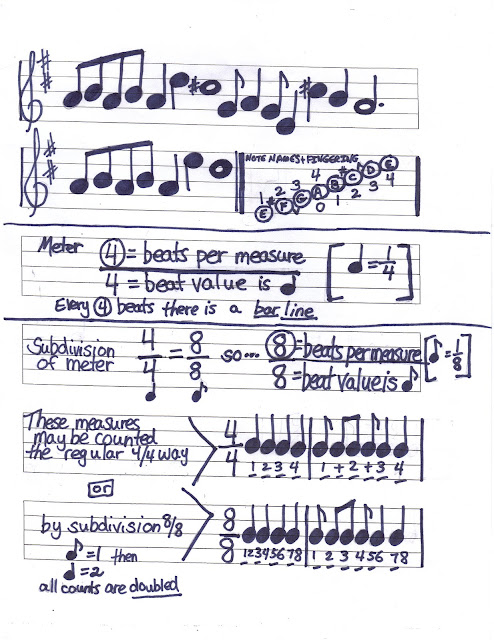 NOTE NAMES + FINGERING
1 2 3 4
E #F G A B #C D E
0 1 2 3 4
Meter
4 = beats per measure
4 = beat value is ♩
[♩ = 1/4]
Every 4 beats there is a bar line.
Subdivision
of meter
4/4 = 8/8
♩ ♪
so...
8 = beats per measure
8 = beat value is ♪
[♪ = 1/8]
These measures
may be counted
the regular 4/4 way
4/4
1 2 3 4 1 + 2 + 3 4
or
by subdivision 8/8
♪ = 1 then
♩ = 2
all counts are doubled
8/8
12 34 56 78 1 2 3 4 5 6 78